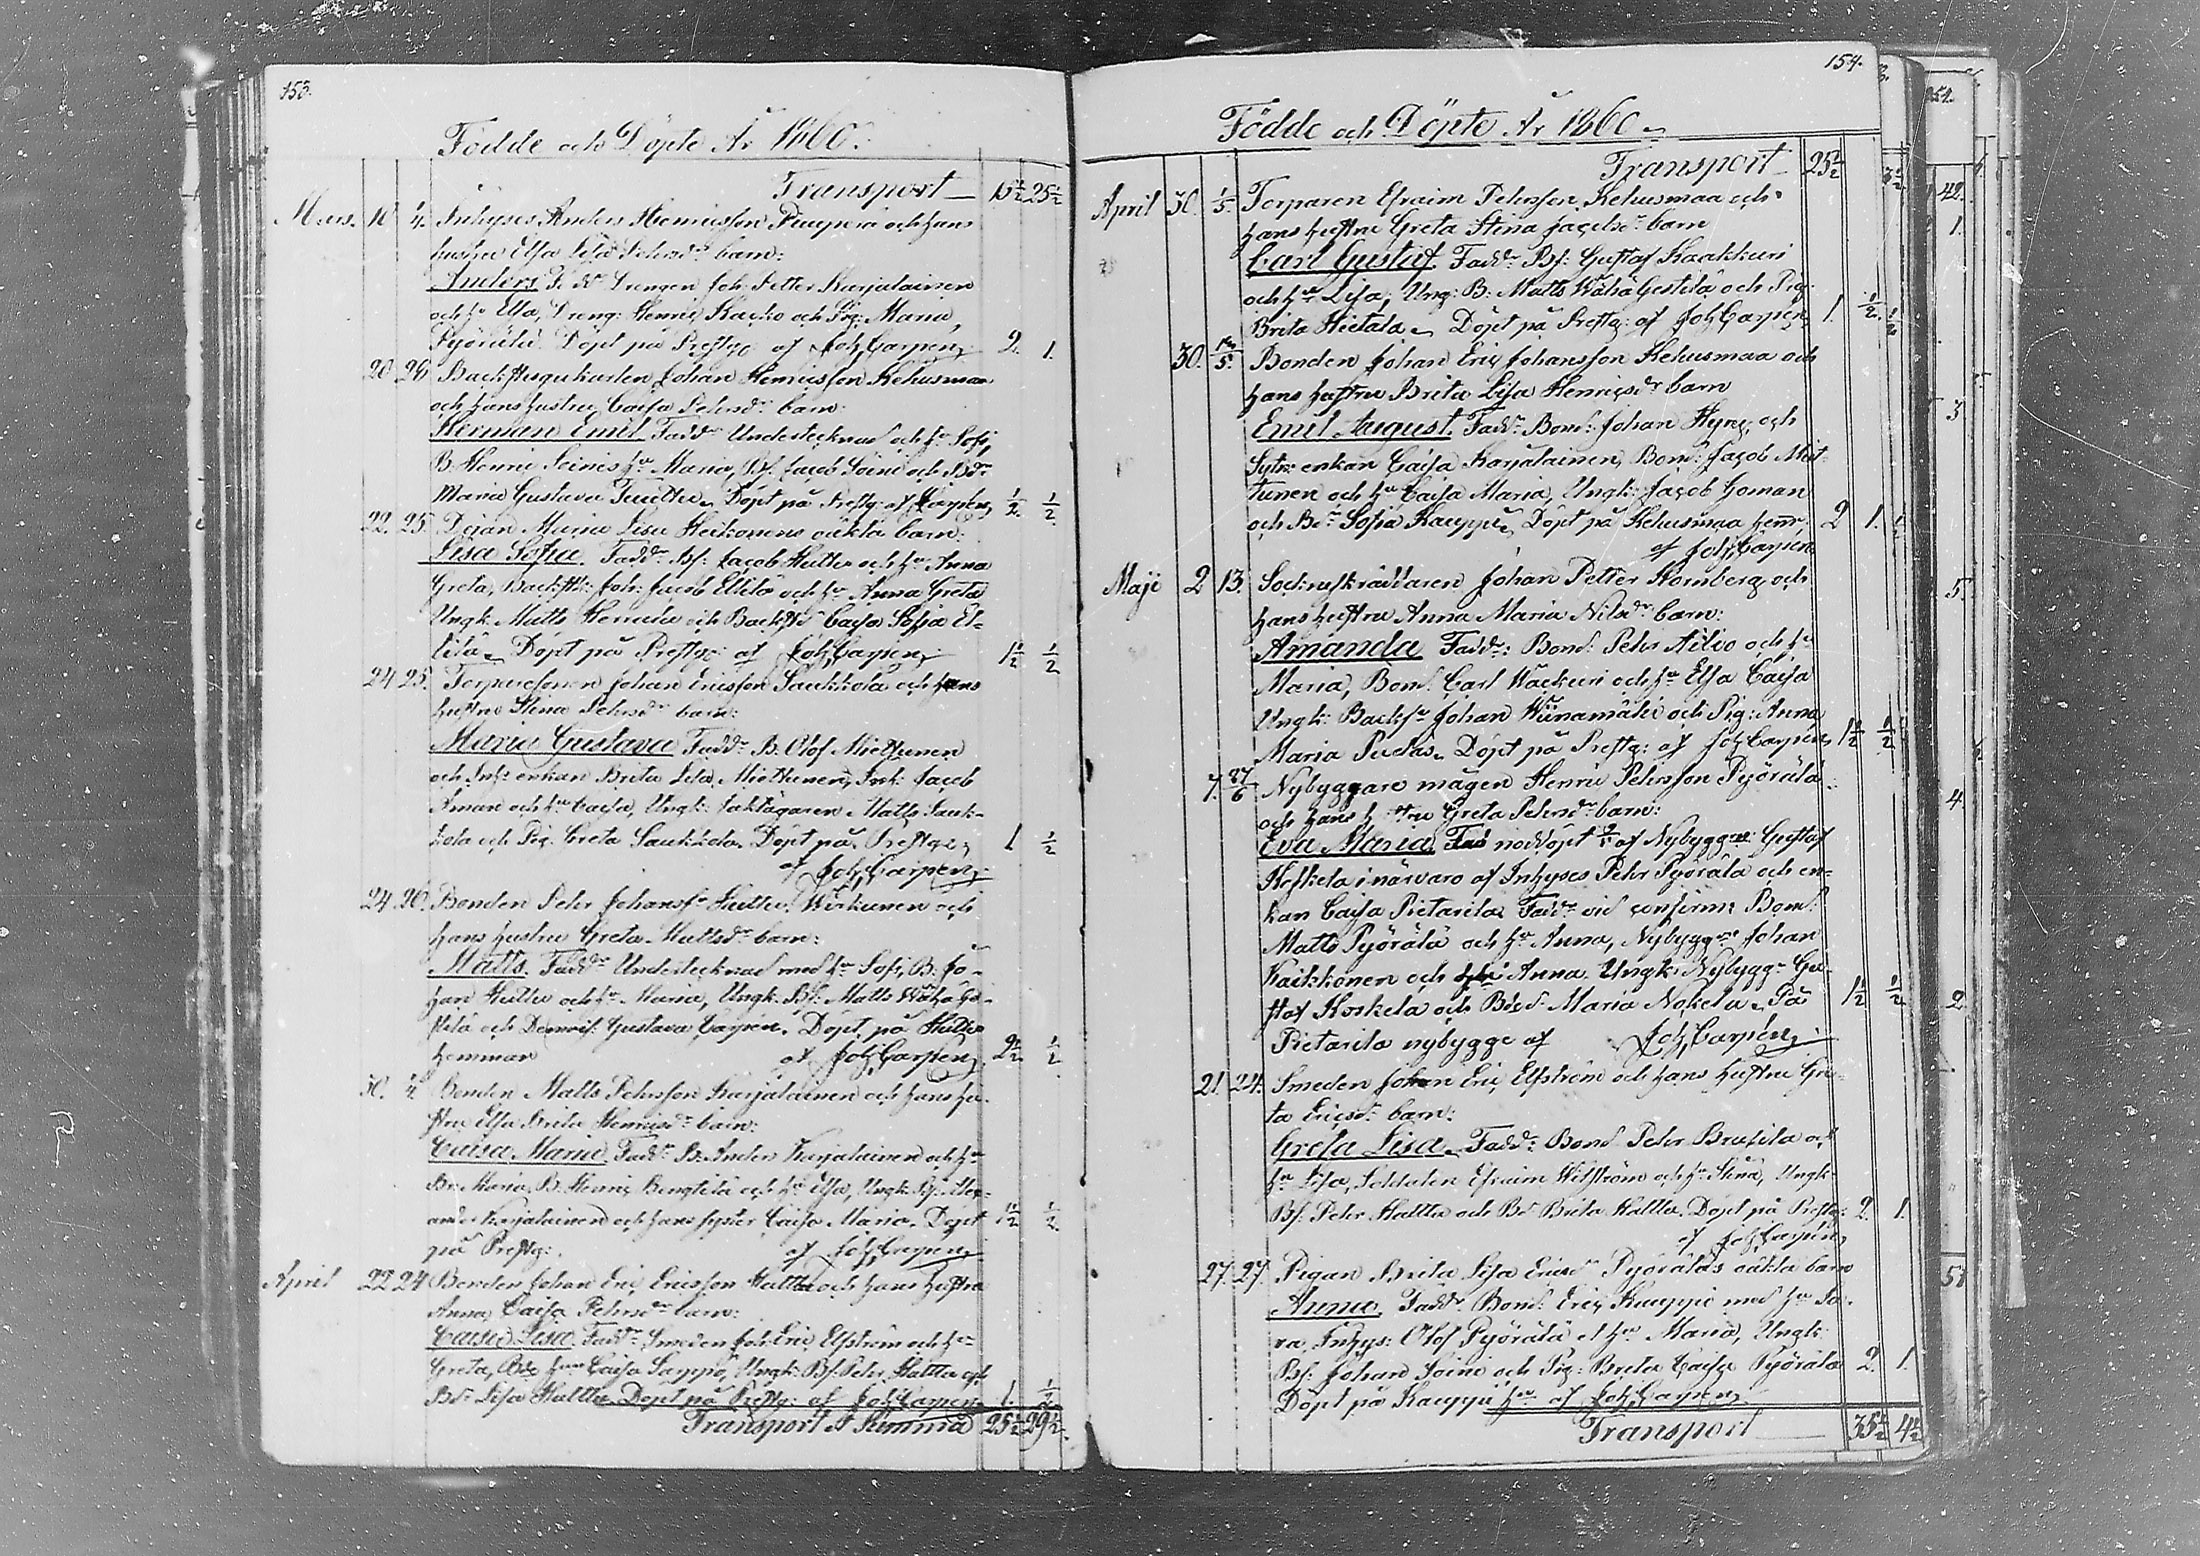 153.
Födde och Döpte År 1860.
Transport 15½ 25½
Mars. 10 ¼. Inhyses Anders Henricsson och hans
hustru Elsa Lisa Pehrsdr barn:
Anders Fadd: Drengen Joh: Petter Karjalainen
och hu Elsa, Dreng: Henric och Pig: Maria
Pyörälä. Döpt på Prestg: af Joh, Carpén 2. 1.
20 26 Backstugukarlen Johan Henricsson Kehusmaa
och hans hustru Caisa Pehrsdr barn:
Herman Emil. Fadd: Undertecknad och hu Sofi,
B. Henric Soinis hu Maria, Bf. Jacob Soini och Bdr
Maria Gustava Huttu. Döpt på Prestg: af Carpén ½. ½.
22. 25. Pigan Maria Lisa Heikonens oäkta barn:
Lisa Sofia. Fadd: Bf: Jacob Huttu och hu Anna
Greta, Backstk: Joh: Jacob Ellilä och hu Anna Greta
Ungk. Matts och Backstd Caisa Sofia El-
lilä. Döpt på Prestg: af Joh, Carpén 1½ ½
24 25. Torparesonen Johan Ericsson Saukkola och hans
hustru Stina Pehrsdr barn:
Maria Gustava Fadd: B. Olof Miettunen
och Inh: enkan Brita Lisa Miettunen, Inh: Jacob
Åman och hu Caisa, Ungk: Matts Sauk-
kola och Pig. Greta Saukkola. Döpt på Prestg: 1 ½
af Joh, Carpén
24 26. Bonden Pehr Johansson Huttu och
hans hustru Greta Mattsdr barn:
Matts. Fadd: Undertecknad med hu Sofi, B. Jo-
han Huttu och hu Maria, Ungk. Bf: Matts Wähägä-
stilä och Demois: Gustava Carpén. Döpt på Huttu
hemman af Joh, Carpén 2½ ½
30. ¼ Bonden Matts Pehrsson Karjalainen och hans hu-
stru Elsa Brita Henricsdr barn:
Caisa Maria. Fadd: B. Anders Karjalainen och hu
Br: Maria, B. Henric Bengtilä och hu Elsa, Ungk. Bf: Alex-
ander Karjalainen och hans syster Caisa Maria. Döpt 1½ ½
på Prestg: af Joh, Carpén
April 22 24 Bonden Johan Eric Ericsson Hattla och hans hustru
Anna Caisa Pehrsdr barn:
Caisa Lisa. Fadd: Smeden Joh. Eric Elfström och hu
Greta, Caisa Sappo, Ungk: Bf: Pehr Hattla och
Bdr Lisa Hattla. Döpt på Prestg: af Joh, Carpén 1. ½
Transport Summa 25½ 29½.
154.
Födde och Döpte År 1860.
Transport 25½
April 30. 1/5. Torparen Efraim Pehrsson Kehusmaa och
hans hustru Greta Stina Jacobsdr barn
Carl Gustaf. Fadd: Bf: Gustaf Kaakkuri
och hu Lisa, Ung: B: Matts Wähägestilä och Pig:
Brita Hietala. Döpt på Prestg: af Joh, Carpén 1. ½. ½
30. Bonden Johan Eric Johansson Kehusmaa och
hans hustru Brita Lisa Henricsdr barn
Emil August. Fadd: Bond: Johan Hyry och
Sytn: enkan Caisa Karjalainen, Bond: Jacob Miet-
tunen och hu Caisa Maria, Ungk: Jacob Goman
och Bdr Sofia Kauppi. Döpt på Kehusmaa hem: 2 1.
af Joh, Carpén
Maji 2 13. Sockneskräddaren Johan Petter Homberg och
hans hustru Anna Maria Nilsdr barn:
Amanda Fadd: Bond: Pehr Ailio och hu
Maria, Bond: Carl Wäckuri och hu Elsa Caisa
Ungk: Backs Johan Wiinamäki och Pig: Anna
Maria Pudas. Döpt på Prestg: af Joh, Carpén 1½ ½
7. 27/6 Nybyggare mågen Henric Pehrsson Pyörälä
och hans hustru Greta Pehrsdr barn:
Eva Maria. Fad nöddöpt af Nybyggre Gustaf
Koskela i närvaro af Inhyses Pehr Pyörälä och en-
kan Caisa Pietarila Fadd: vid confirm: Bond:
Matts Pyörälä och hu Anna, Nybyggre Johan
Kaikkonen och hu Anna Ungk. Nybygg: Gu-
staf Koskela och Bdr Maria Nokela. På 1½ ½
Pietarila nybygge af Joh, Carpén
21. 24. Smeden Johan Eric Elfström och hans hustru Gre-
ta Ericsdr barn:
Greta Lisa. Fadd: Bond: Pehr Brusila och
hu Lisa, Soldaten Efraim Witström och hu Stina, Ungk:
Bf: Pehr Hattla och Bdr Brita Hattla. Döpt på Prestg: 2. 1.
af Joh, Carpén
27. 27. Pigan Brita Lisa Ericsdr Pyöräläs oäkta barn
Anna. Fadd: Bond: Eric Kauppi med hu Sa-
ra, Inhys: Olof Pyörälä och hu Maria, Ungk:
Bf: Johan Soini och Pig: Brita Caisa Pyörälä 2. 1.
Döpt på Kauppi hn af Joh, Carpén
Transport 35½ 4½